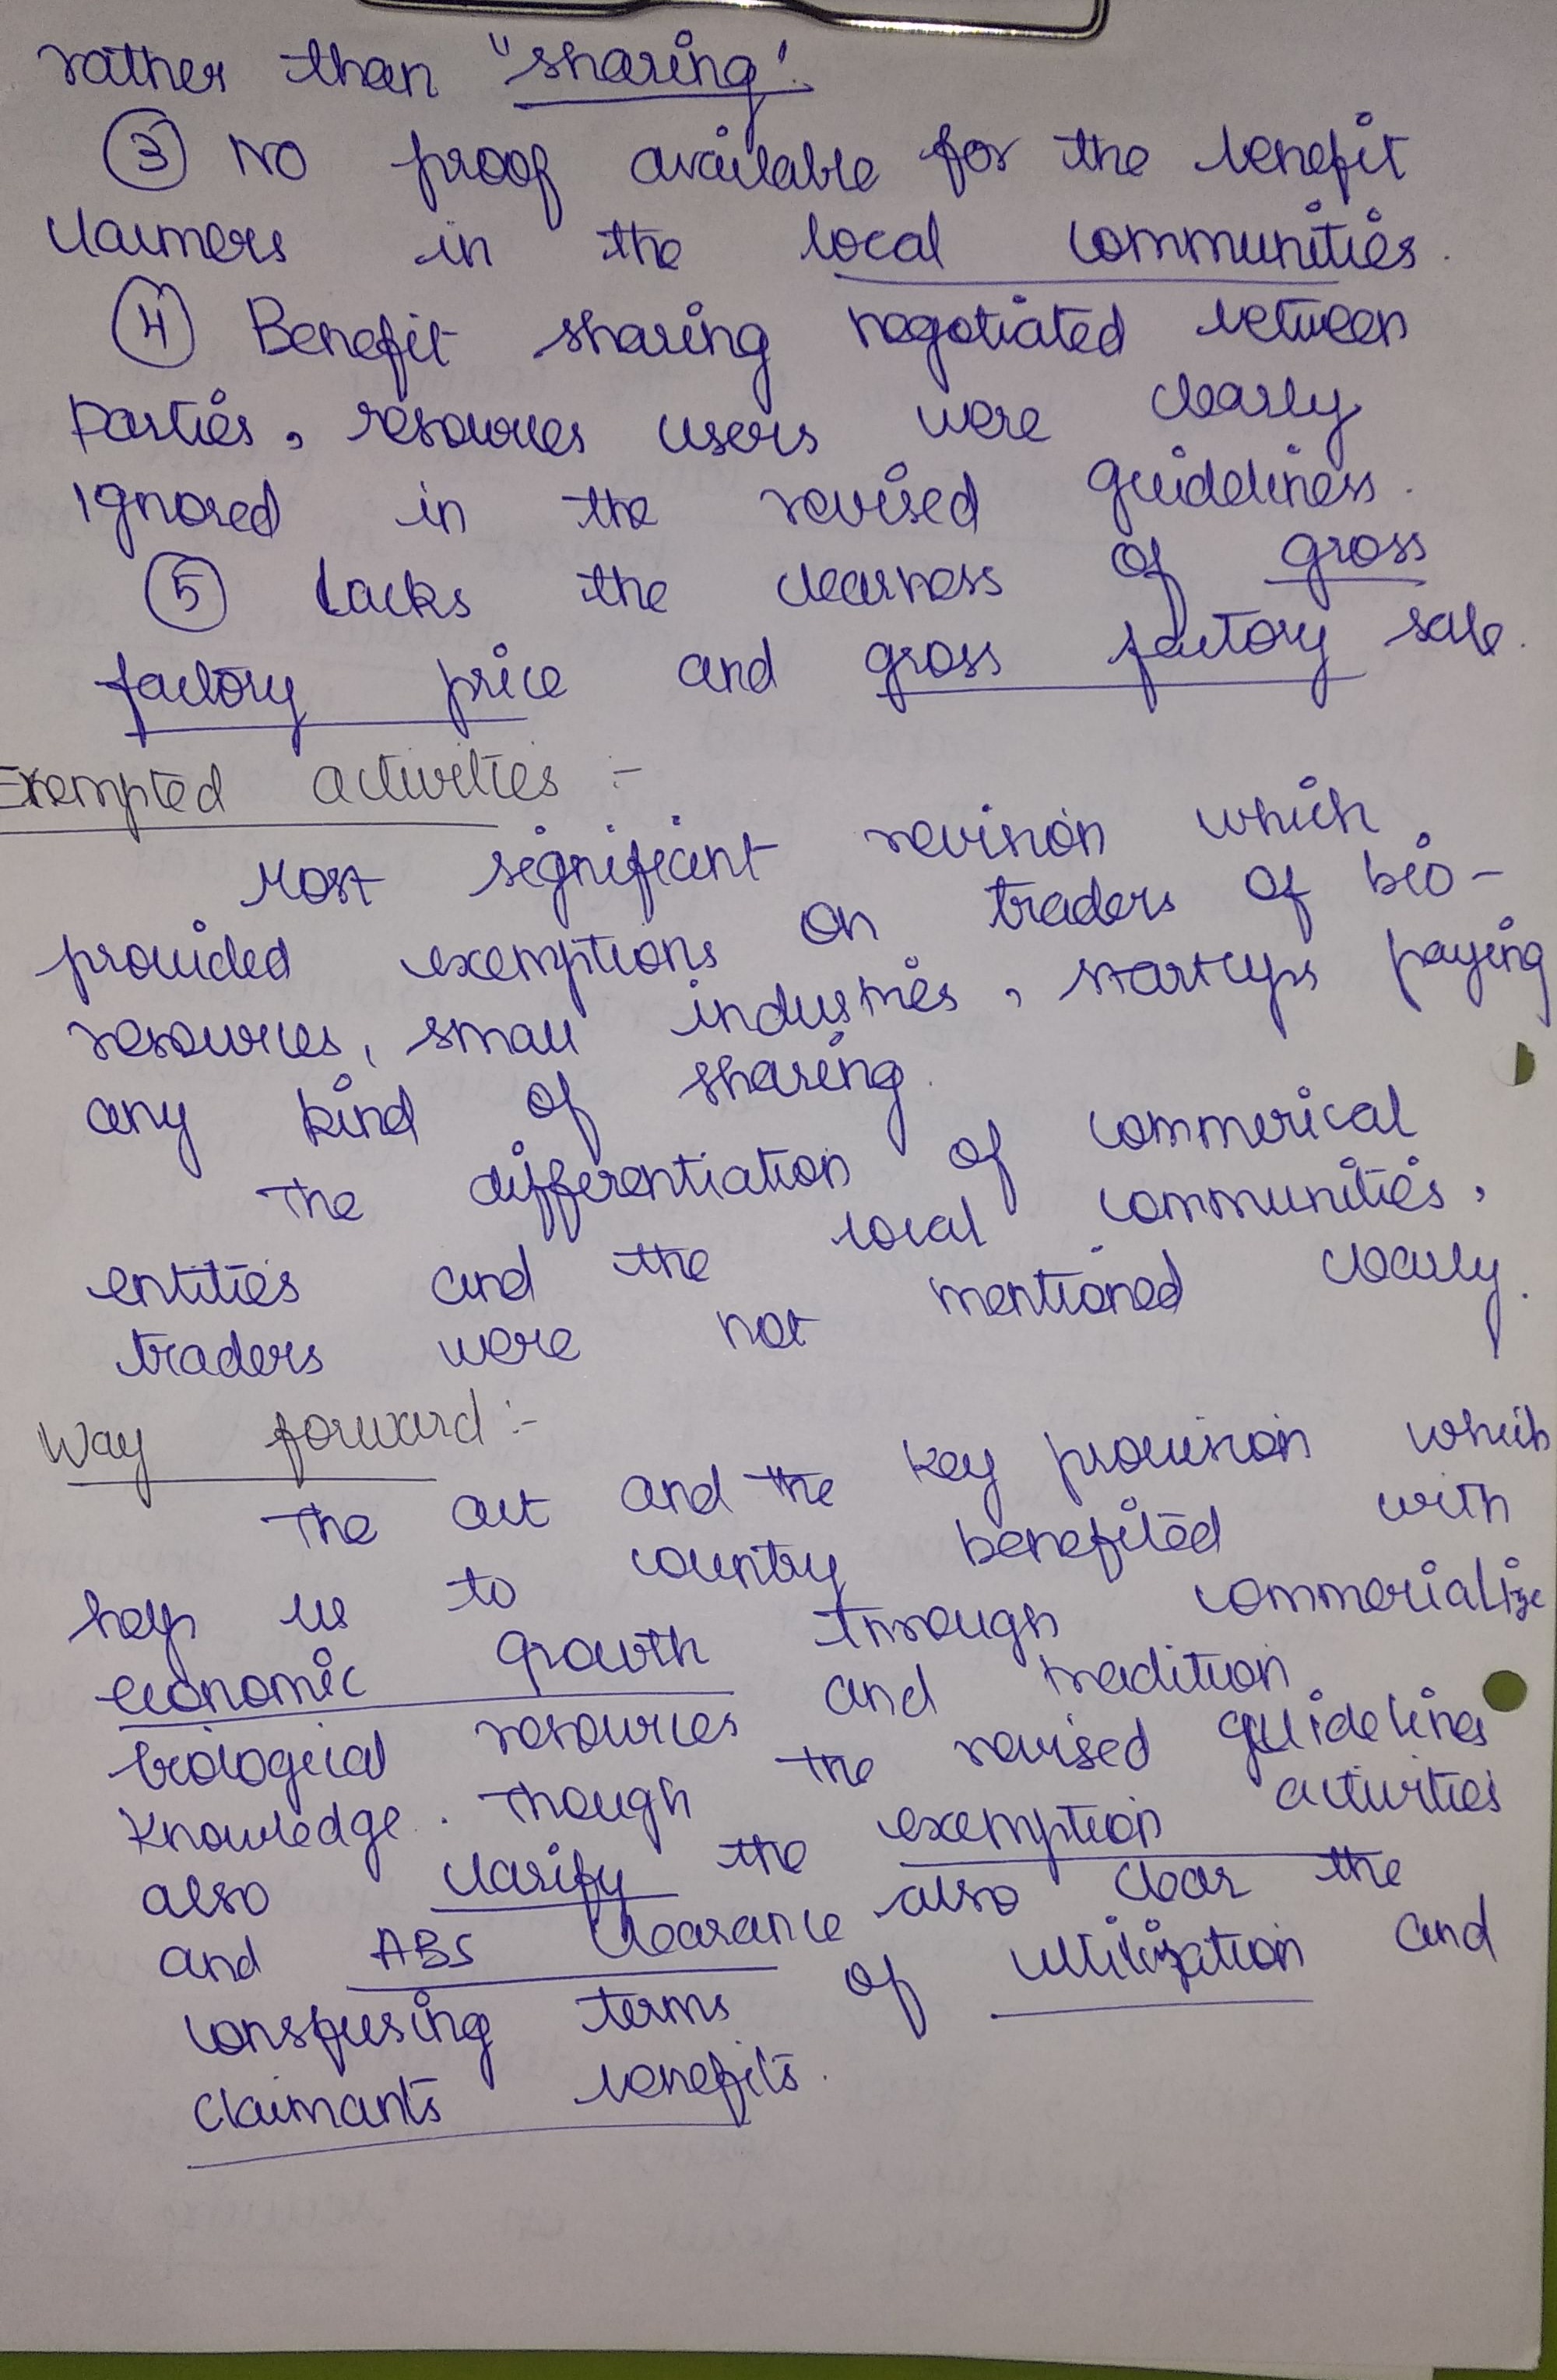 rather than "sharing".
③ No proof available for the benefit
claimers in the local communities.
④ Benefit sharing negotiated between
parties, resources users were clearly
ignored in the revised guideliness.
⑤ Lacks the clearness of gross
factory price and gross factory sale.
Exempted activities :-
Most significant revision which
provided exemptions on traders of bio-
resources, small industries, startups paying
any kind of sharing.
The differentiation of commerical
entities and the local communities,
traders were not mentioned clearly.
Way forward :-
The act and the key provision which
help us to country benefited with
economic growth through commerialize
biological resources and tradition
knowledge. Though the revised guidelines
also clarify the exemption activities
and ABS clearance also clear the
consfusing terms of utilization and
claimants benefits.